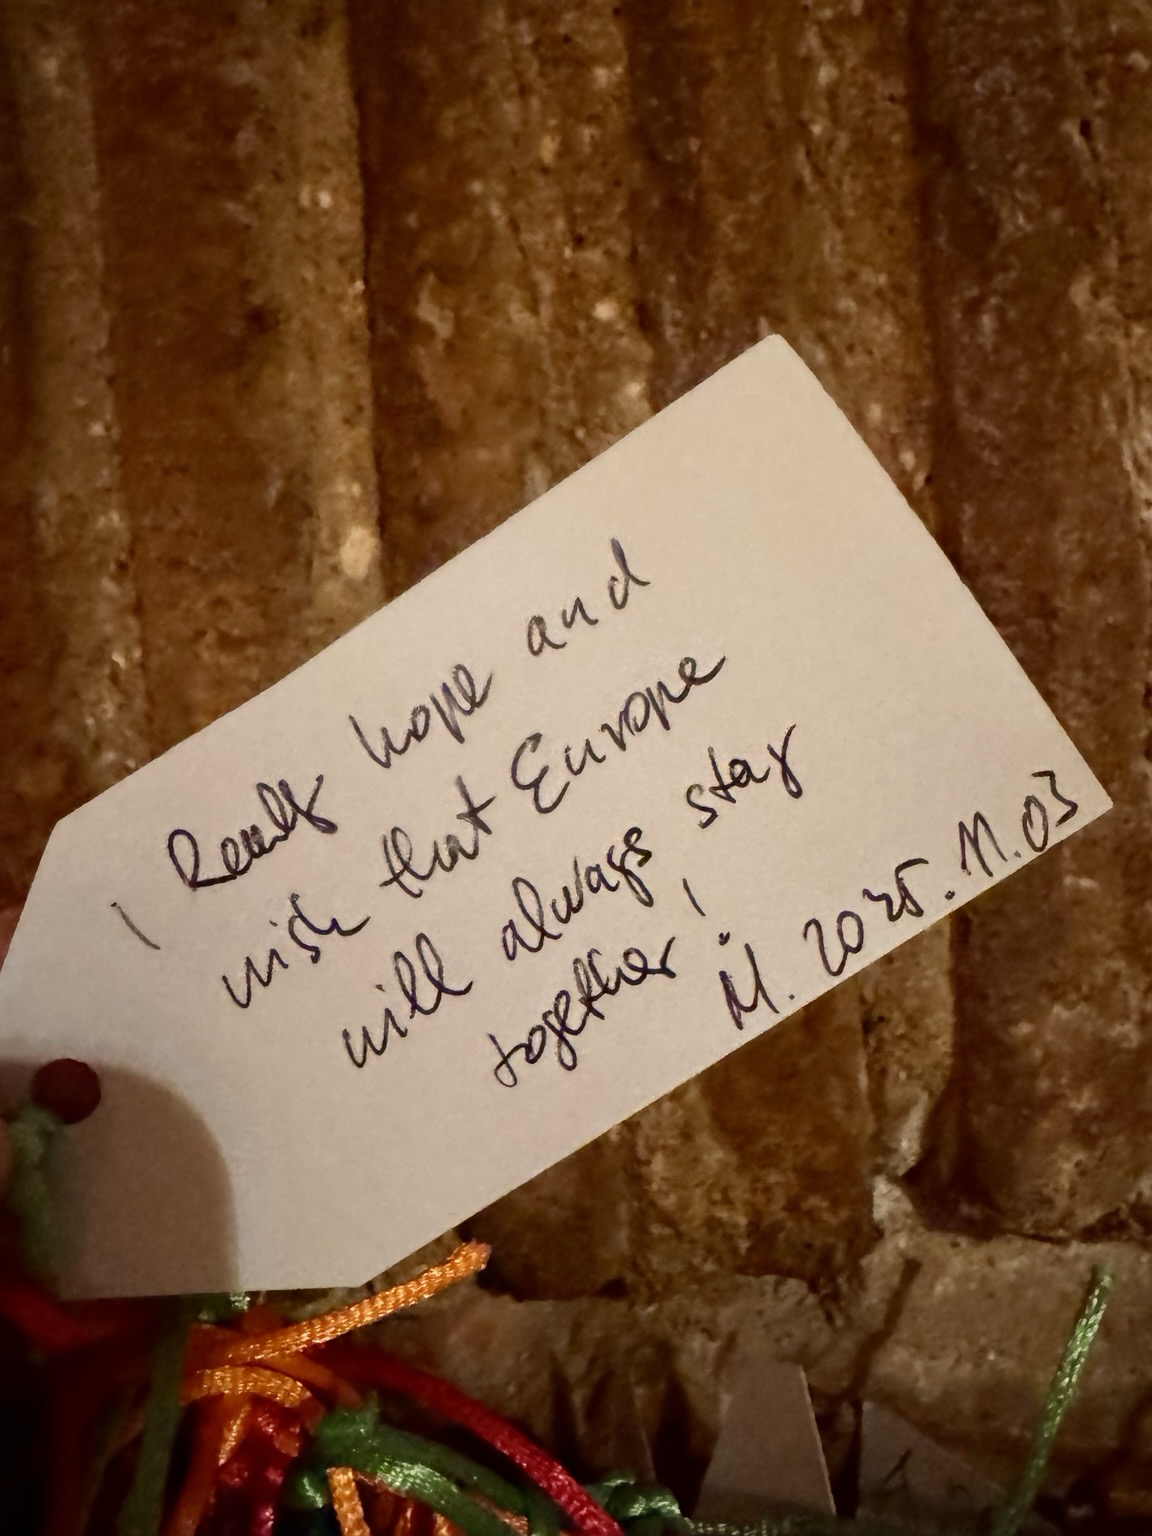 I Really hope and
wish that Europe
will always stay
together!
M. 2025.11.03